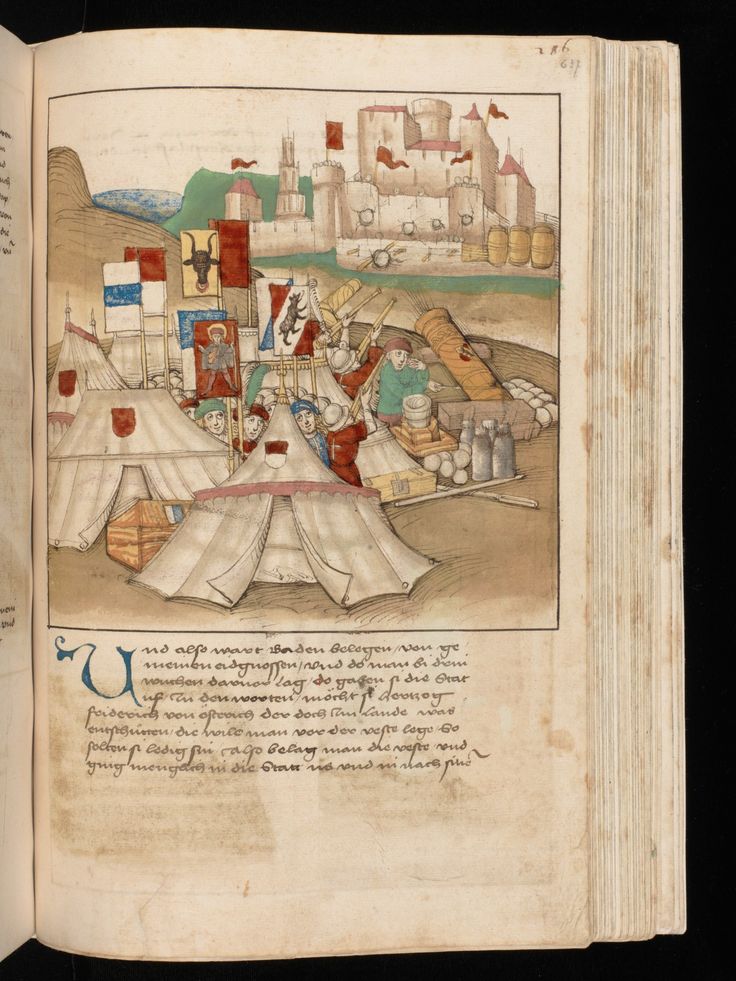 286
637
Und also wart Baden belegen / von ge
meinen eidgnossen / und do man bi drin
wuchen darvor lag / do gaben si die Stat
uff In den worten / möcht si hertzog
friderich von österich der doch Im lande was
entschütten / die wile man vor der veste lege So
solten si ledig sin / also belag man die veste und
ging mengclich in die Statt us und in nach sinē